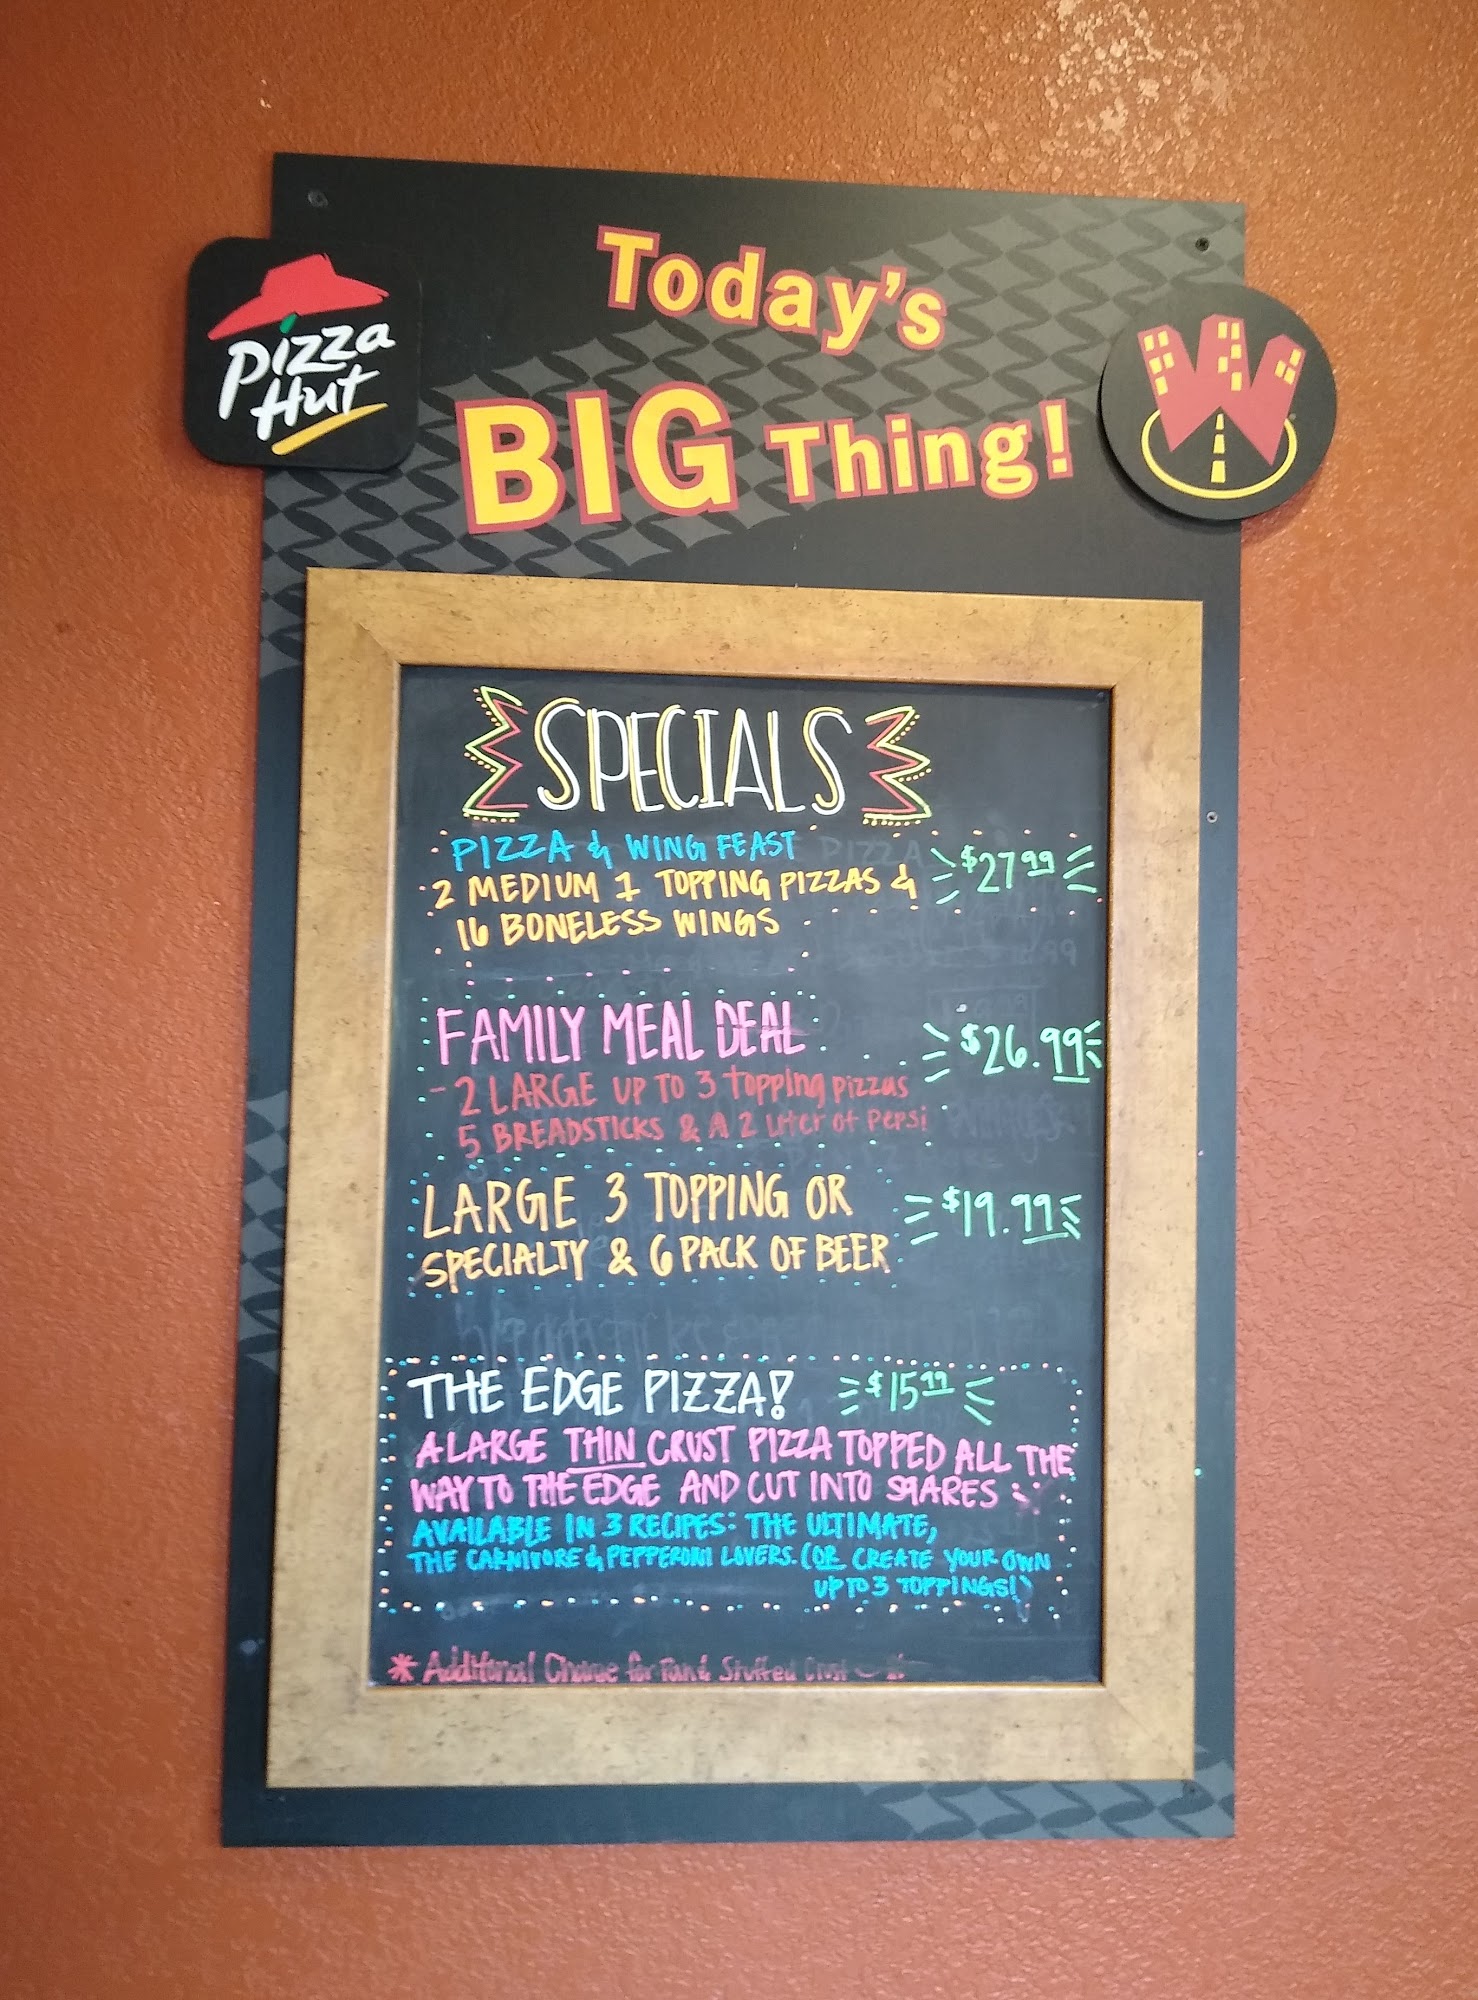 Today's
BIG Thing!
Pizza
Hut
W
SPECIALS
PIZZA & WING FEAST
$27.99
2 MEDIUM 1 TOPPING PIZZAS &
16 BONELESS WINGS
FAMILY MEAL DEAL
$26.99
- 2 LARGE UP TO 3 topping pizzas
5 BREADSTICKS & A 2 Liter of Pepsi
LARGE 3 TOPPING OR
$19.99
SPECIALTY & 6 PACK OF BEER
THE EDGE PIZZA! $15.99
A LARGE THIN CRUST PIZZA TOPPED ALL THE
WAY TO THE EDGE AND CUT INTO SQARES
AVAILABLE IN 3 RECIPES: THE ULTIMATE,
THE CARNIVORE & PEPPERONI LOVERS. (OR CREATE YOUR OWN
UP TO 3 TOPPINGS!)
* Additional Charge for Pan & Stuffed Crust